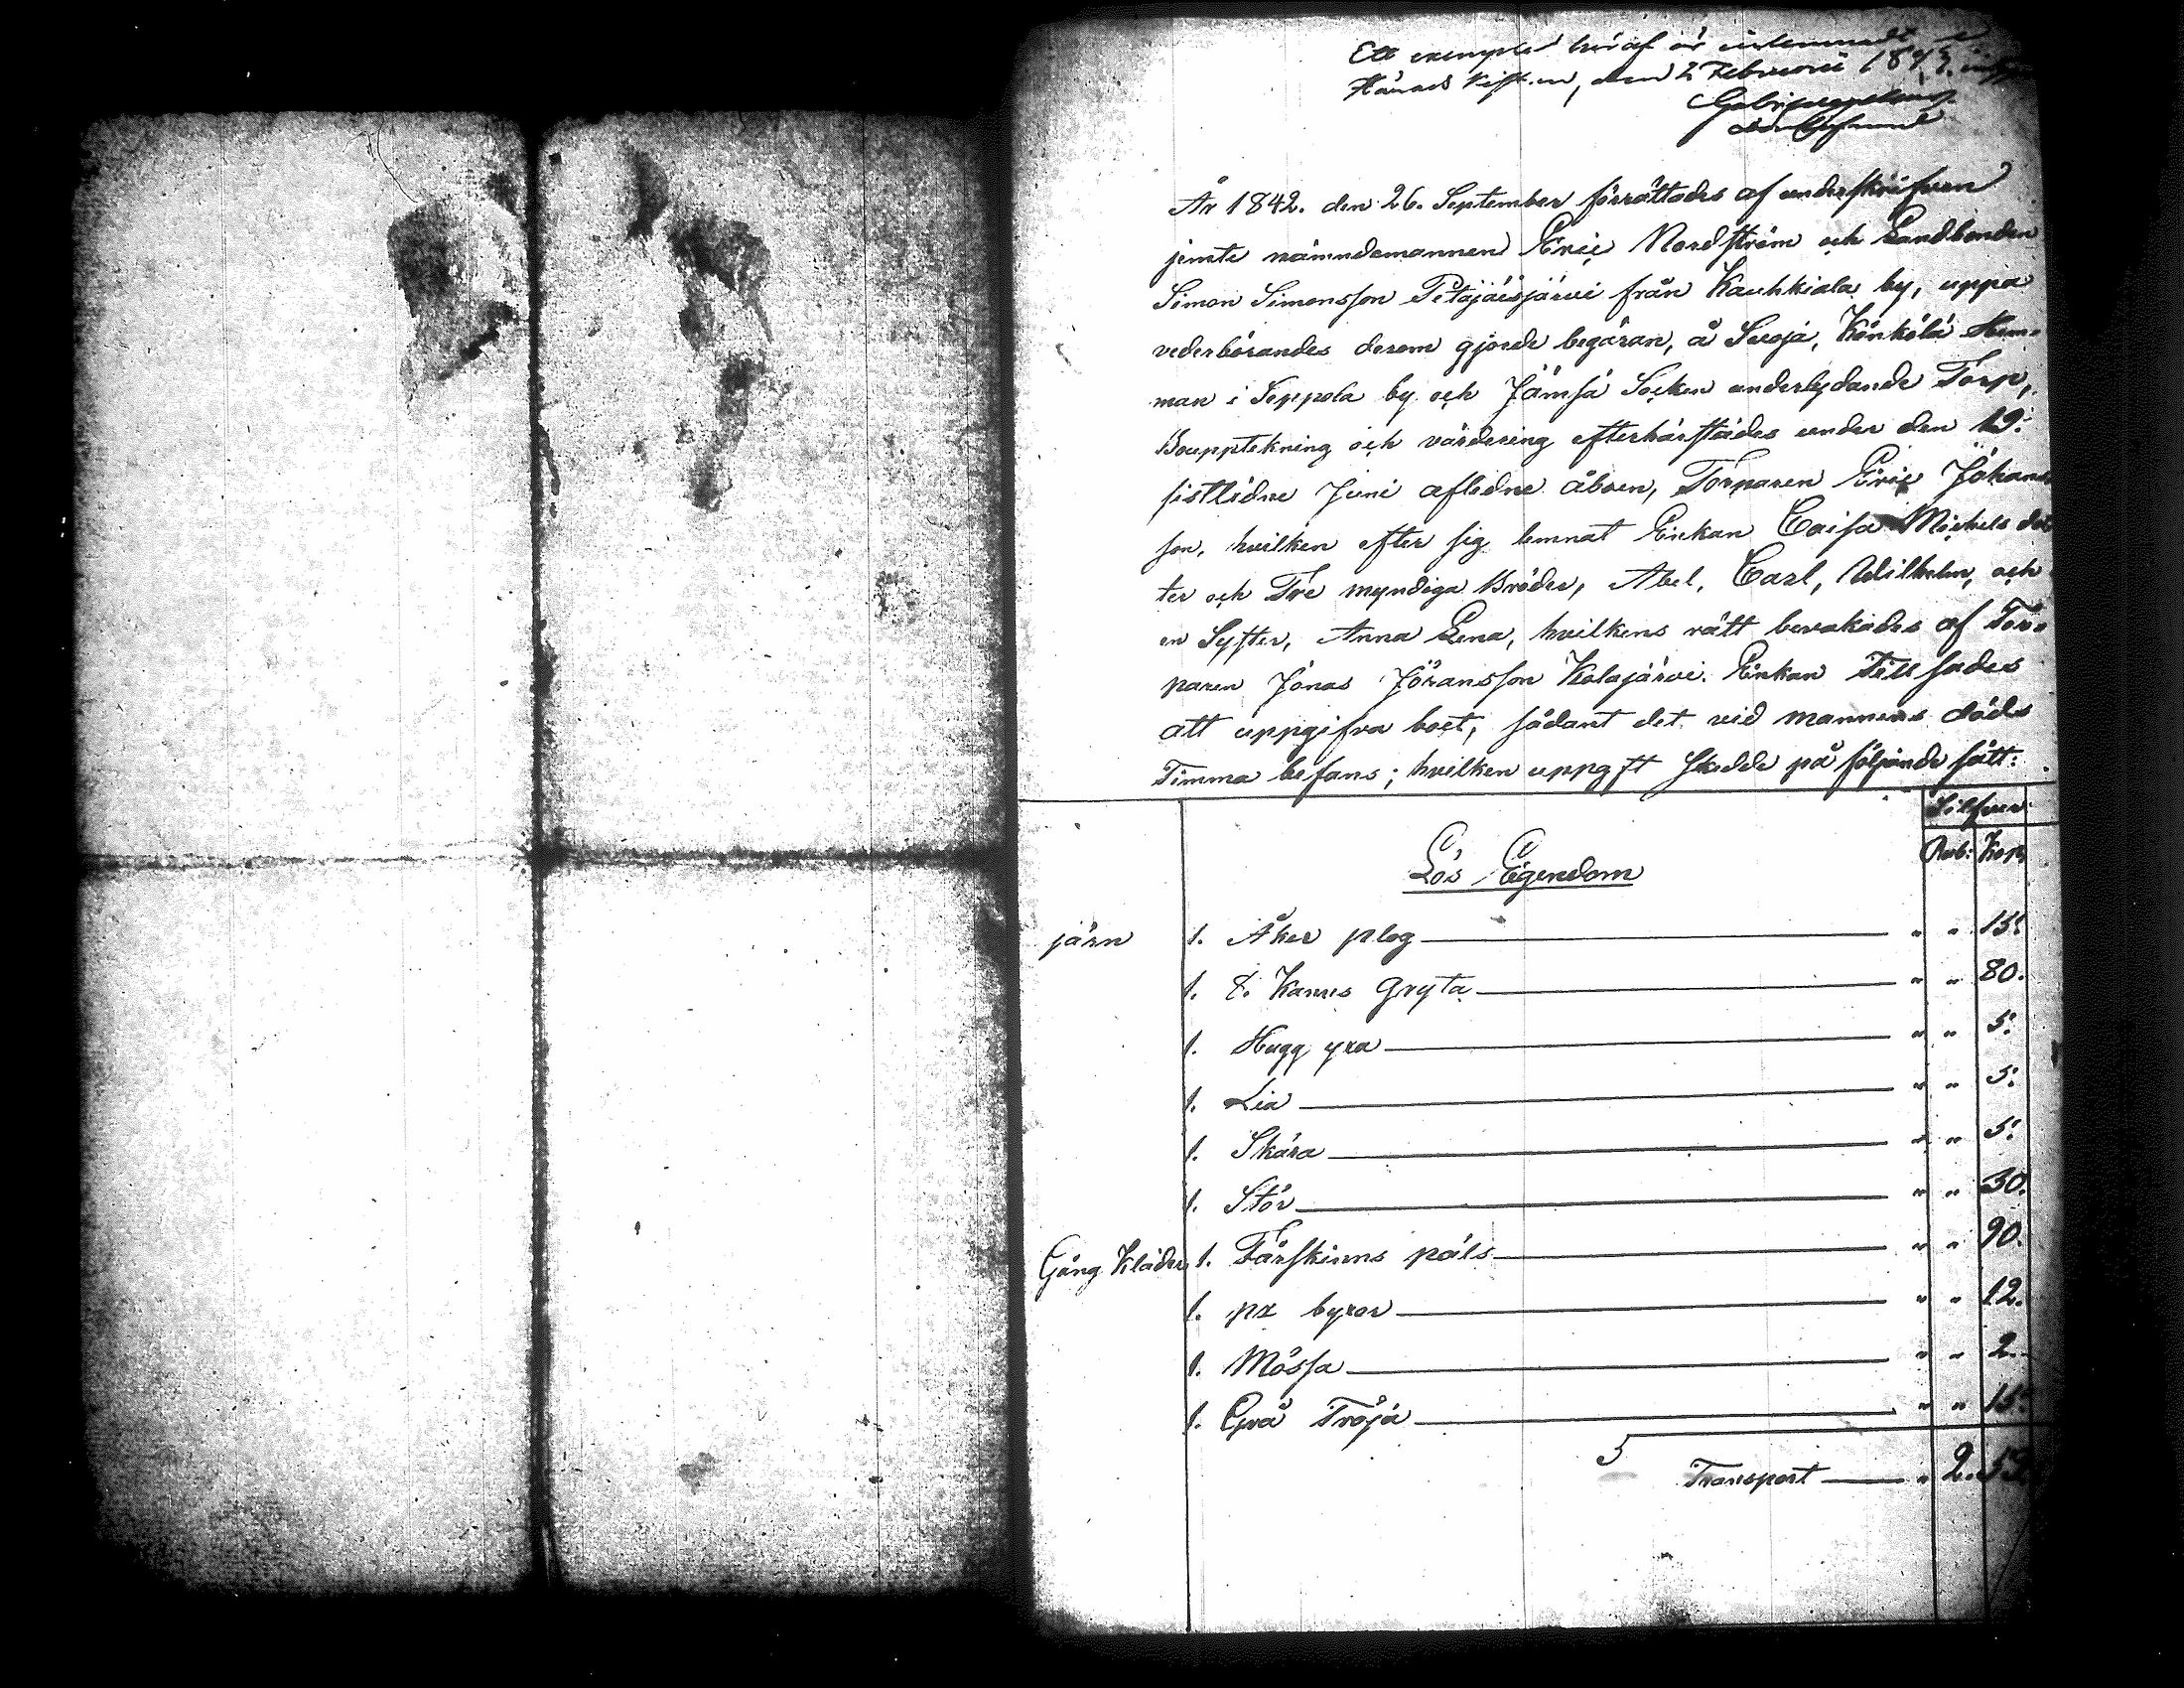 Ett exemplar häraf är inlemnadt
Härads Rätten, den 2 Februarii 1843.
År 1842. den 26. September förrättades af underskrifven
jemte nämndemannen Eric Nordström och Landbonden
Simon Simonsson Petäjäisjärvi från Kauhkiala by, uppå
vederbörandes derom gjorde begäran, å Seroja, Könkölä Hem-
man i Seppola by och Jämsä Socken underlydande Torp,
Bouppteckning och värdering efter härstädes under den 19:
sistlidne Juni aflidne åboen, Torparen Eric Johans
son, hvilken efter sig lemnat Enkan Caisa Michels dot
ter och Tre myndiga Bröder, Abel, Carl, Wilhelm, och
en Syster, Anna Lena, hvilkens rätt bevakades af Tor-
paren Jonas Jöransson Kolajärvi. Enkan Tillsades
att uppgifva boet, sådant det vid mannens döds
Timma befans; hvilken uppgift skedde på följande sätt:
Silfver
Rub: Kop
Lös Egendom
järn 1. Åker plog " " 15:
1. 8. Kanns Gryta " " 80.
1. Hugg yxa " " 5:
1. Lia " " 5:
1. Skära " " 5:
1. Stör " " 30.
Gång Kläder 1. Fårskinns päls " " 90.
1. par byxor " " 12.
1. Mössa " " 2.
1. Grå Tröja " " 15:
Transport " 2. 59.